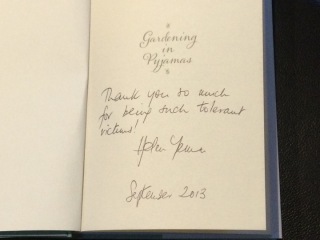 Gardening
in
Pyjamas
Thank you so much
for being such tolerant
victims!
Helen Yemm
September 2013